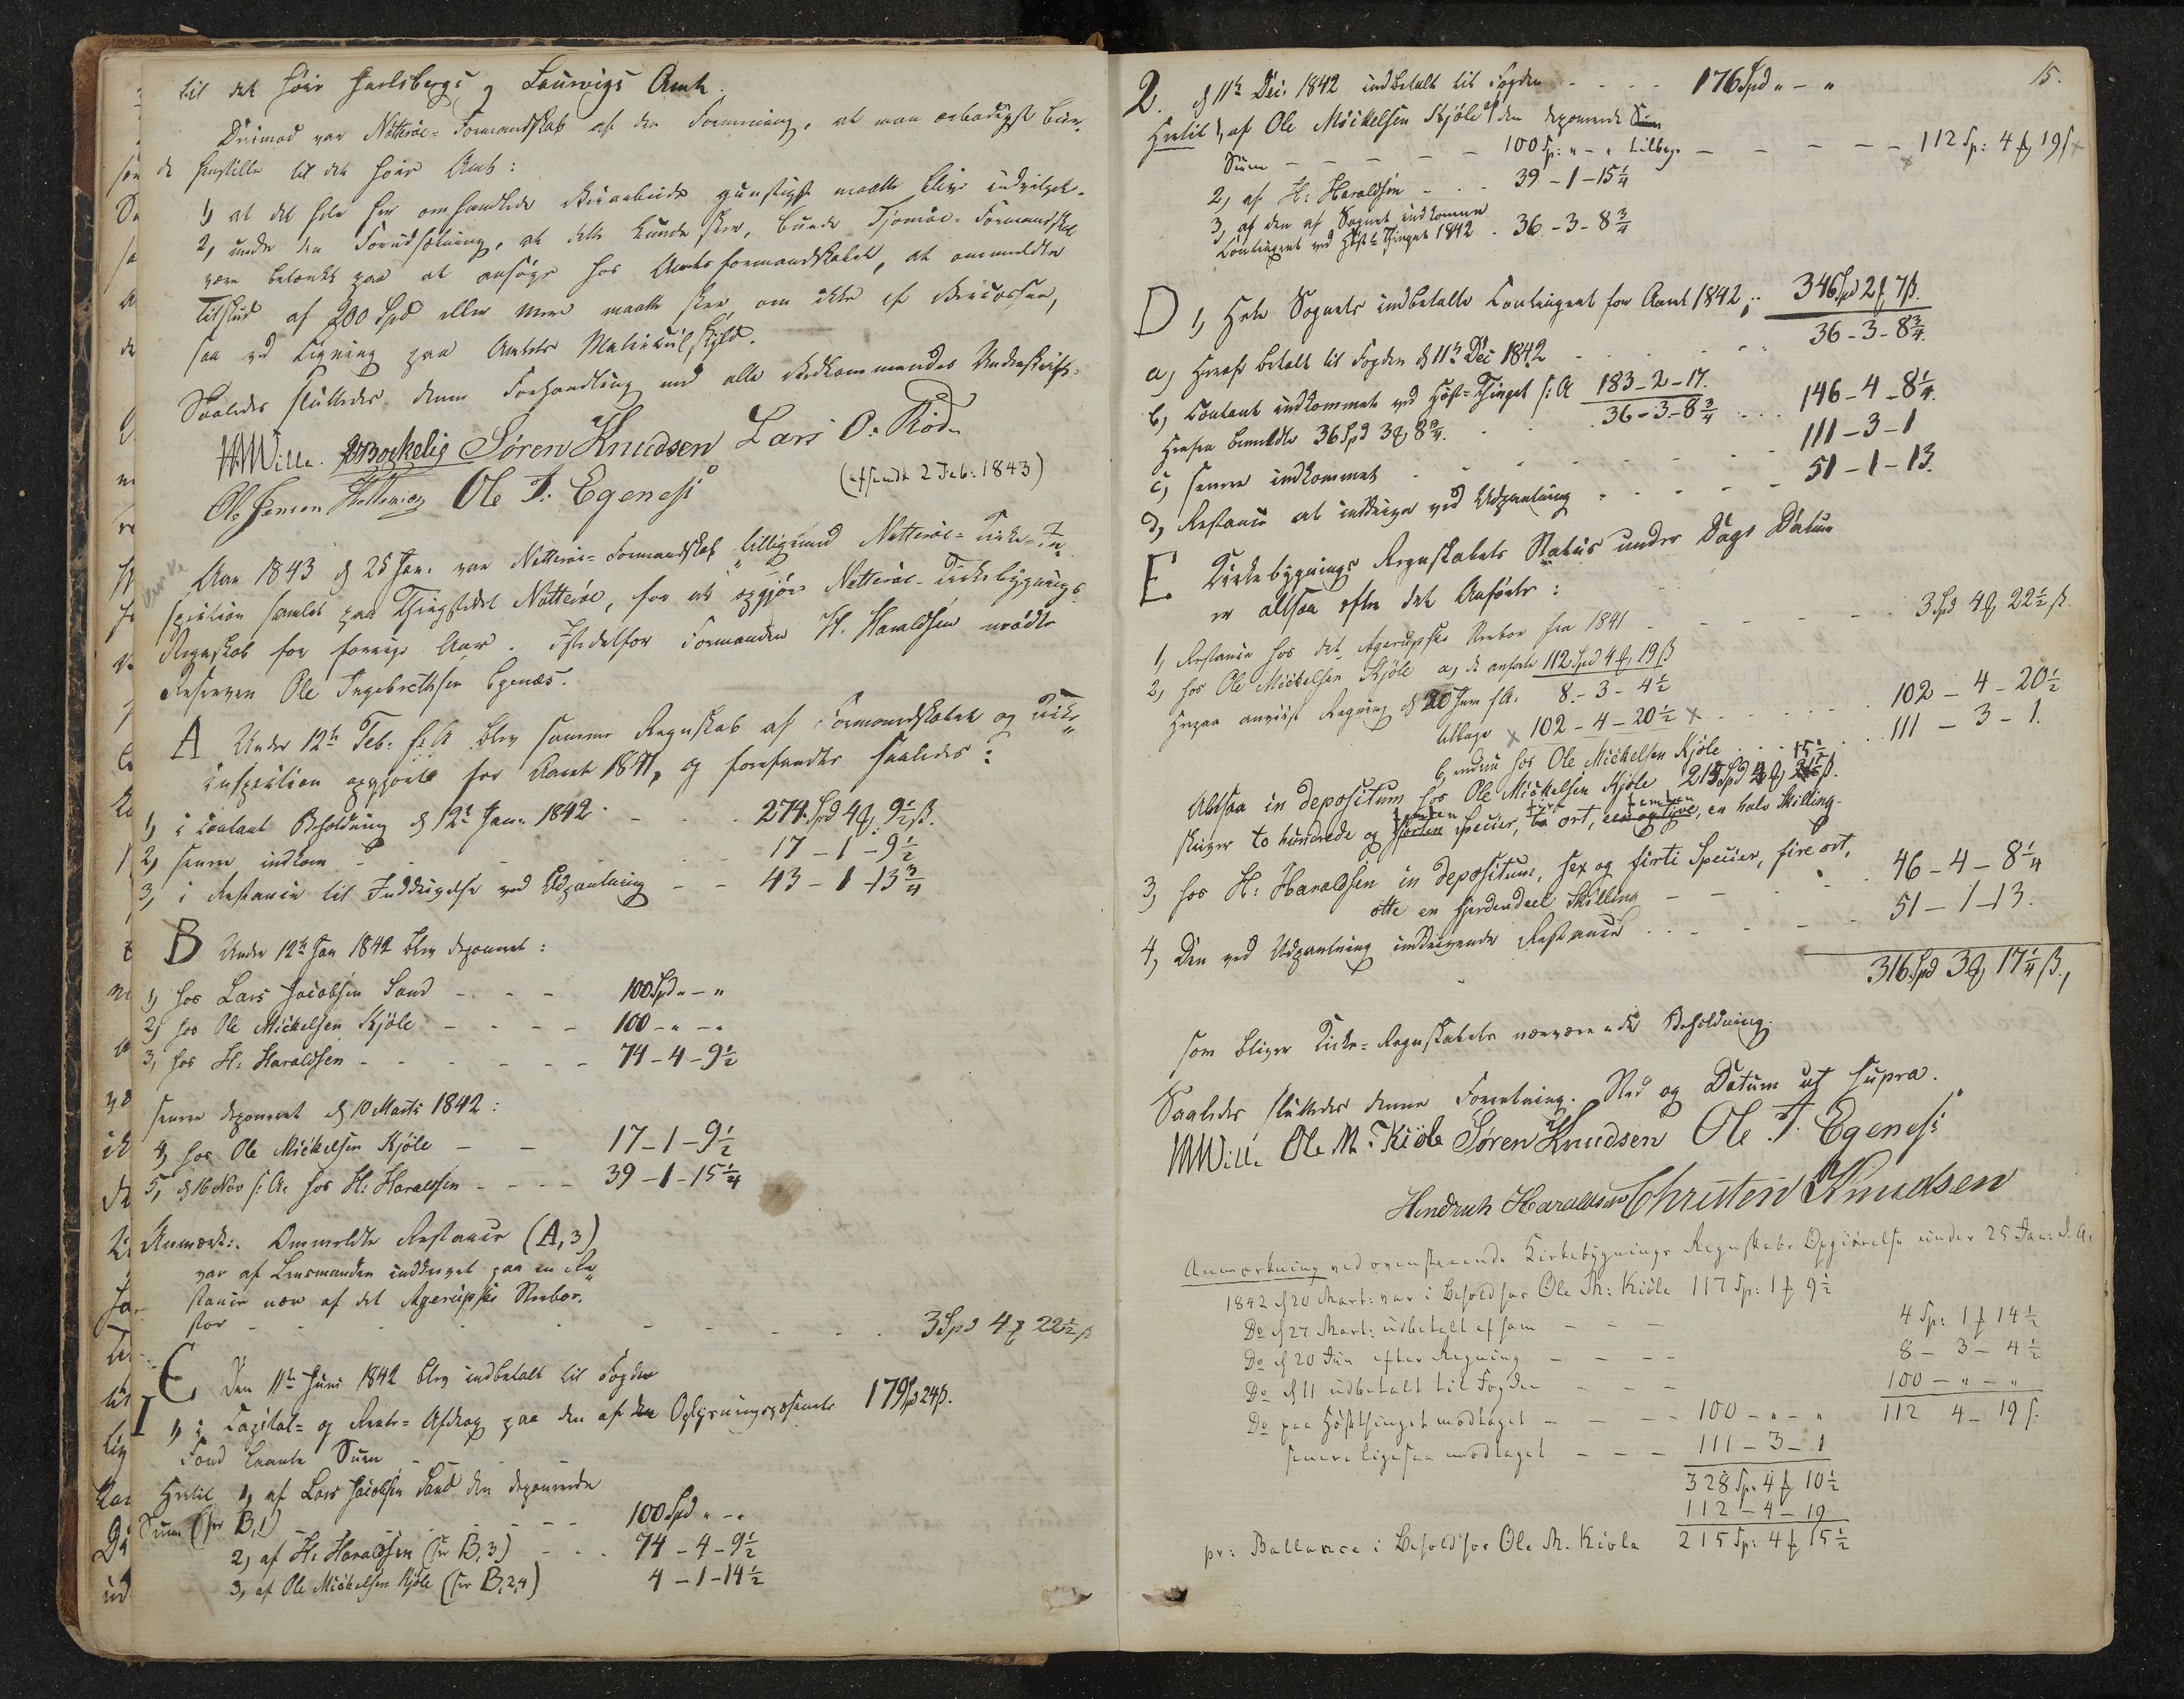 til det høie Jarlsbergs og Laurvigs Amt.
Derimod var Nøtterøe-Formandskab af den Formening, at man ærbødigst bur-
de henstille til det høie Amt:
1, at det hele her omhandlede gunstigst maatte blive indvilget.
2, under den Forudsætning, at dette kunde skee, burde Tjømøe-Formandskab
være betænkt paa at ansøge hos Amtsformandskabet, at anmeldte
Tilskud af 200 Spd eller mere maatte skee, om ikke af
saa ved Ligning paa Amtets Matriculskyld.
Saaledes sluttedes denne Forhandling med alle Vedkommendes Underskrift:
HMWille. Bockelie Søren Knudsen Lars O. Rød
Ole Jensen Ole I. Egenesi (afsendt 2 Feb. 1843)
Aar 1843 d 25 Jan. var Nøtterøe-Formandskab tilligemed Nøtterøe-Kirke-In-
spection samlet paa Thingstedet Nøtterøe, for at opgjøre Nøtterøe-Kirkebygnings-
Regnskab for forrige Aar. Istedetfor Formanden H. Haraldsen mødte
Reserven Ole Ingebrethsen Egenæs.
A Under 12te Feb. f:A blev samme Regnskab af Formandskabet og Kirke-
inspection opgjort for Aaret 1841, og forefandtes saaledes:
1, i contant Beholdning d 12te Jan. 1842 - - 274 Spd 4 9½ ß.
2, senere indkom - - 17 - 1 - 9½
3, i Restance til Inddrivelse ved Udpantning - - 43 - 1 - 13¾
B Under 12te Jan 1842 blev deponeret:
1, hos Lars Jacobsen Sand - - - 100 Spd " - "
2, hos Ole Mickelsen Kjøle - - - 100 - " - "
3, hos H. Haraldsen - - - 74 - 4 - 9½
senere deponeret d 10 Marts 1842:
4, hos Ole Mickelsen Kjøle - - 17 - 1 - 9½
5, d 16 Nov f:A. hos H: Haraldsen - - - 39 - 1 - 15¼
Anmærk:. Ommeldte Restance (A,3)
var af Lensmanden inddrevet paa en Re-
stance nær af det Agerupske Stervbo,
stor - - - 3 Spd 4 22½ ß
C Den 11te Juni 1842 blev indbetalt til Fogden
I 1, i Capital- og Rente-Afdrag paa den af Oplysningsvæsenets 179 Spd 24 ß.
Fond laante Sum
Hertil 1, af Lars Jacobsen Sand den deponerede
Sum (see B,1) - - - 100 Spd " - "
2, af H. Haraldsen (see B,3) - - - 74 - 4 - 9½
3, af Ole Mickelsen Kjøle (see B,2,4) 4 - 1 - 14½
15.
2. d 11te Dec. 1842 indbetalt til Fogden - - - - 176 Spd " - "
Hertil 1, af Ole Mickelsen Kjøle af den deponerede
Sum - - - - 100 Sp: " - " tilbage - - - - 112 Sp: 4 19 ß
2, af H: Haraldsen - - - 39 - 1 - 15¼
3, af den af Sognet indkomne
Contingent ved Høst-Thinget 1842 . 36 - 3 - 8¾
D 1, Hele Sognets indbetalte Contingent for Aaret 1842, .. 346 Spd 2 7 ß.
a, Heraf betalt til Fogden d 11te Dec 1842 - - - 36 - 3 - 8¾.
b, Contant indkommet ved Høst-Thinget f:A 183 - 2 - 17.
Herfra bemeldte 36 Spd 3 8¾. . . 36 - 3 - 8¾ . . . 146 - 4 - 8¼.
c, senere indkommet - - - 111 - 3 - 1
d, Restance at inddrive ved Udpantning - - - 51 - 1 - 13.
E Kirkebygnings Regnskabets Status under Dags Datum
er altsaa efter det Anførte:
1, Restance hos det Agerupske Stervbo fra 1841 - - - 3 Spd 4 22½ ß.
2, hos Ole Mickelsen Kjøle a, de anførte 112 Spd 4 19 ß
Herpaa anviist Regning d 20 Juni f:A. 8 - 3 - 4½
tilbage 102 - 4 - 20½ . . . 102 - 4 - 20½
b, endnu hos Ole Mickelsen Kjøle . . . 111 - 3 - 1.
Altsaa in depositum hos Ole Mickelsen Kjøle 215 Spd 4 15½ ß.
skriver to hundrede og femten Specier, fire ort, femten, en halv Skilling.
3, hos H: Haraldsen in depositum, sex og firti Specier, fire ort,
otte en fjerdendeel Skilling - - - 46 - 4 - 8¼
4, Den ved Udpantning inddrivende Restance . . . 51 - 1 - 13.
316 Spd 3 17¼ ß.,
som bliver Kirke-Regnskabets nærværende Beholdning.
Saaledes sluttedes denne Forretning. Sted og Datum ut supra.
HMWille Ole M. Kiøle Søren Knudsen Ole I. Egenesi
Hendrich Haraldsen Christen Knudsen
Anmerkning ved ovenstaaende Kirkebygnings Regnskabs Opgiørelse under 25 Jan: d. A.
1842 d 20 Mart: var i Behold hos Ole M: Kiøle 117 Sp: 1 9½
Do d 27 Mart: udbetalt af ham - - - 4 Sp: 1 14½
Do d 20 Jun efter Regning - - - - 8 - 3 - 4½
Do d 11 udbetalt til Fogden - - - 100 - " - "
Do paa Høstthinget modtaget - - - - 100 - " - " 112 4 - 19 ß.
senere ligesaa modtaget - - - 111 - 3 - 1
328 Sp: 4 10½
112 - 4 - 19
pr: Ballance i Behold hos Ole M. Kiøle 215 Sp: 4 15½